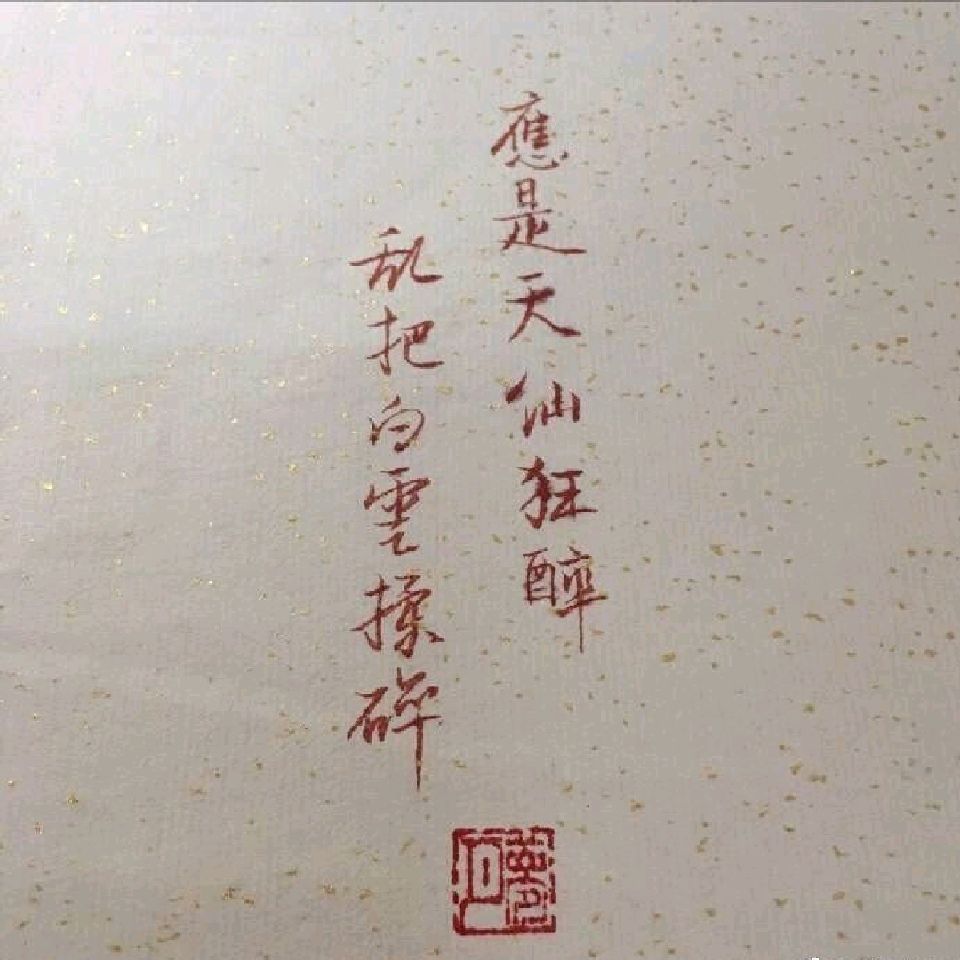 應是天仙狂醉
乱把白雲揉碎